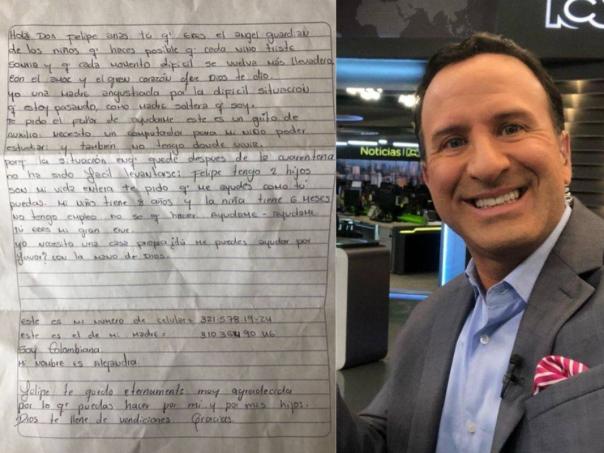 Hola Don Felipe Arias tú q' eres el angel guardian
de los niños q' haces posible q' cada niño triste
sonria y q' cada momento dificil se vuelva más llevadero,
con el amor y el gran corazón que Dios te dio.
Yo una madre angustiada por la dificil situación
q' estoy pasando, como madre soltera q' soy.
te pido el favor de ayudarme este es un grito de
auxilio. necesito un computador para mi niño poder
estudiar; y tambien no tengo donde vivir.
porq' la situación enq' quede despues de la cuarentena
no ha sido facil levantarse; Felipe tengo 2 hijos
son mi vida entera te pido q' me ayudes como tu
puedas. Mi niño tiene 8 años y la niña tiene 6 meses
No tengo empleo no se q' hacer. ayudame - ayudame
Tú eres mi gran
yo necesito una casa propia ¡tú me puedes ayudar por
favor? con la mano de Dios.
este es mi numero de celular= 321-578-19-24
este es el de mi madre=
Soy Colombiana
mi nombre es Alejandra.
Felipe te quedo eternamente muy agradecida
por lo q' puedas hacer por mi y por mis hijos.
Dios te llene de vendiciones. Gracias.
Noticias